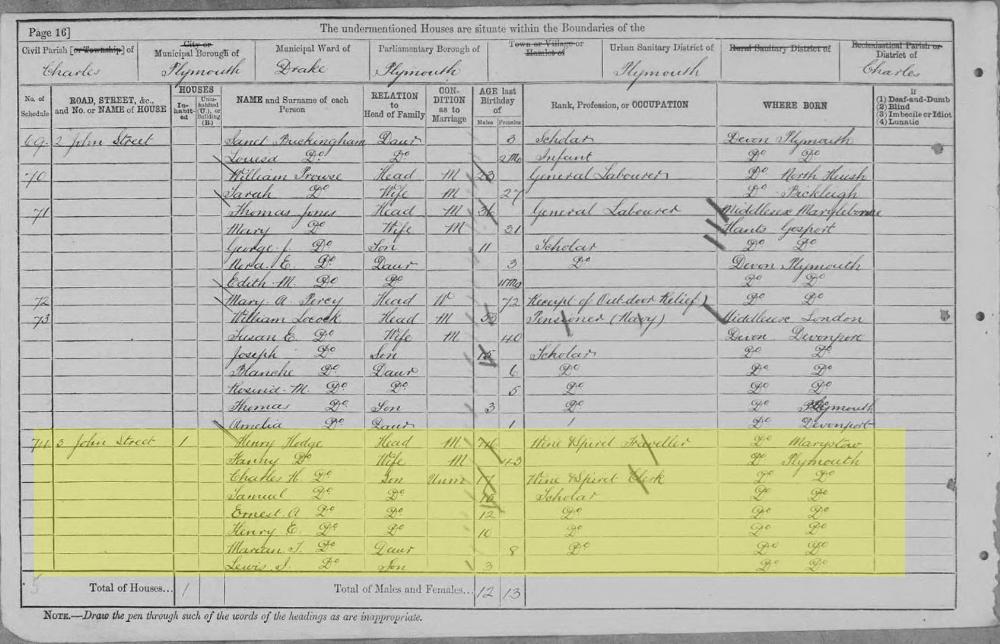 Page 16] The undermentioned Houses are situate within the Boundaries of the
Civil Parish [or Township] of City or Municipal Borough of Municipal Ward of Parliamentary Borough of Town or Village or Hamlet of Urban Sanitary District of Rural Sanitary District of Ecclesiastical Parish or District of
Charles Plymouth Drake Plymouth Plymouth Charles
No. of Schedule ROAD, STREET, &c., and No. or NAME of HOUSE HOUSES Inhabited Uninhabited (U.), or Building (B.) NAME and Surname of each Person RELATION to Head of Family CONDITION as to Marriage AGE last Birthday of Males Females Rank, Profession, or OCCUPATION WHERE BORN If (1) Deaf-and-Dumb (2) Blind (3) Imbecile or Idiot (4) Lunatic
69 2 John Street Buckingham Daur 3 Scholar Devon Plymouth
Louisa Do Do 2 Mo Infant Do Do
70 William Prowse Head M 23 General Labourer Do North Huish
Sarah Do Wife M 27 Do Bickleigh
71 Thomas Jones Head M General Labourer Middlesex Marylebone
Mary Do Wife M 21 Hants Gosport
George J. Do Son 11 Scholar Do Do
E. Do Daur 3 Do Devon Plymouth
Edith M. Do Do Do Do
72 Mary A. Percy Head W 72 Receipt of Outdoor Relief Do Do
73 William Head M Pensioner (Navy) Middlesex London
Susan E. Do Wife M 40 Devon Devonport
Joseph Do Son Scholar Do Do
Blanche Do Daur 6 Do Do Do
M. Do Do 5 Do Do Do
Thomas Do Son 3 Do Do Plymouth
Amelia Do Daur 1 Do Devonport
74 3 John Street 1 Henry Hodge Head M Wine & Spirit Traveller Do Marystow
Fanny Do Wife M 43 Do Plymouth
Charles H. Do Son Unm 17 Wine & Spirit Clerk Do Do
Samuel Do Do Scholar Do Do
Ernest A Do Do 12 Do Do Do
Henry E. Do Do 10 Do Do Do
Marian J. Do Daur 8 Do Do Do
Lewis J. Do Son 3 Do Do
Total of Houses... 1 Total of Males and Females... 12 13
NOTE.—Draw the pen through such of the words of the headings as are inappropriate.